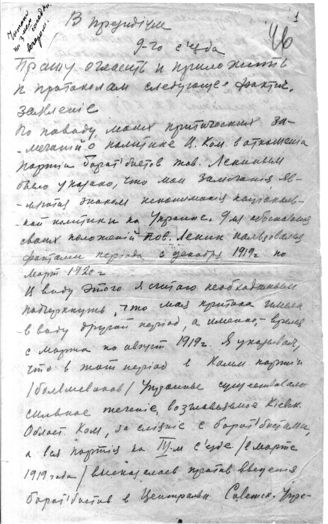 1
46
В Президіум
9-го с'езда
Прошу огласить и приложить
к протоколам следующее фактич.
заявленіе
По поводу моих критических за-
мечаній о политике Ц. Ком. в отношеніи
партіи боротьбистов тов. Лениным
было указано, что мои замечанія яв-
ляются знаком непониманія національ-
ной политики на Украине. Для обоснованія
своих положеній тов. Ленин пользовался
фактами періода с декабря 1919 г. по
март 1920 г
В виду этого я считаю необходимым
подчеркнуть, что моя критика имела
в виду другой період, а именно, - время
с марта по август 1919 г. Я указывал,
что в этот період в Комм партіи
/большевиков/ Украины существовало
сильное теченіе, возглавляемое Кіевск.
Област. Ком, за сліяніе с боротьбистами
а вся партія на III-м с'езде /в марте
1919 года/ высказалась против введенія
боротьбистов в Центральн. Советск. Упра-